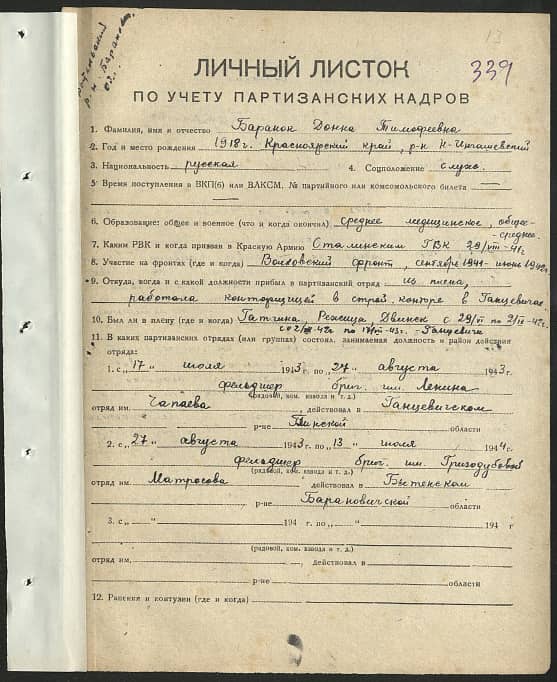 13
339
ЛИЧНЫЙ ЛИСТОК
ПО УЧЕТУ ПАРТИЗАНСКИХ КАДРОВ
1. Фамилия, имя и отчество Баранок Донна Тимофеевна
2. Год и место рождения 1918 г. Красноярский край, р-н Н-Ингашевский
3. Национальность русская 4. Соцположение служ.
5 Время поступления в ВКП(б) или ВЛКСМ, № партийного или комсомольского билета —
6. Образование: общее и военное (что и когда окончил) среднее медицинское, общее-
среднее.
7. Каким РВК и когда призван в Красную Армию Сталинским ГВК 29/VIII-41 г.
8. Участие на фронтах (где и когда) Волховский фронт, сентябрь 1941 - июнь 1942 г.
9. Откуда, когда и с какой должности прибыл в партизанский отряд из плена,
работала конторщицей в строй. конторе в Ганцевичах
10. Был ли в плену (где и когда) Гатчина, Режица, Двинск с 29/VI по 2/IX-42 г.
Ганцевичи
11. В каких партизанских отрядах (или группах) состоял, занимаемая должность и район действия
отряда:
1. с „17 " июля 1943 г. по „27 " августа 1943 г.
фельдшер бриг. им. Ленина
(рядовой, ком. взвода и т. д.)
отряд им. Чапаева, действовал в Ганцевичском
р-не Пинской области
2. с „27 " августа 1943 г. по „13 " июля 1944 г.
фельдшер бриг. им. Гризодубовой
(рядовой, ком. взвода и т. д.)
отряд им. Матросова действовал в Бытенском
р-не Барановичской области
3. с „ " 194 г. по „ " 194 г
(рядовой, ком. взвода и т. д.)
отряд им. , действовал в
р-не области
12. Ранения и контузии (где и когда)